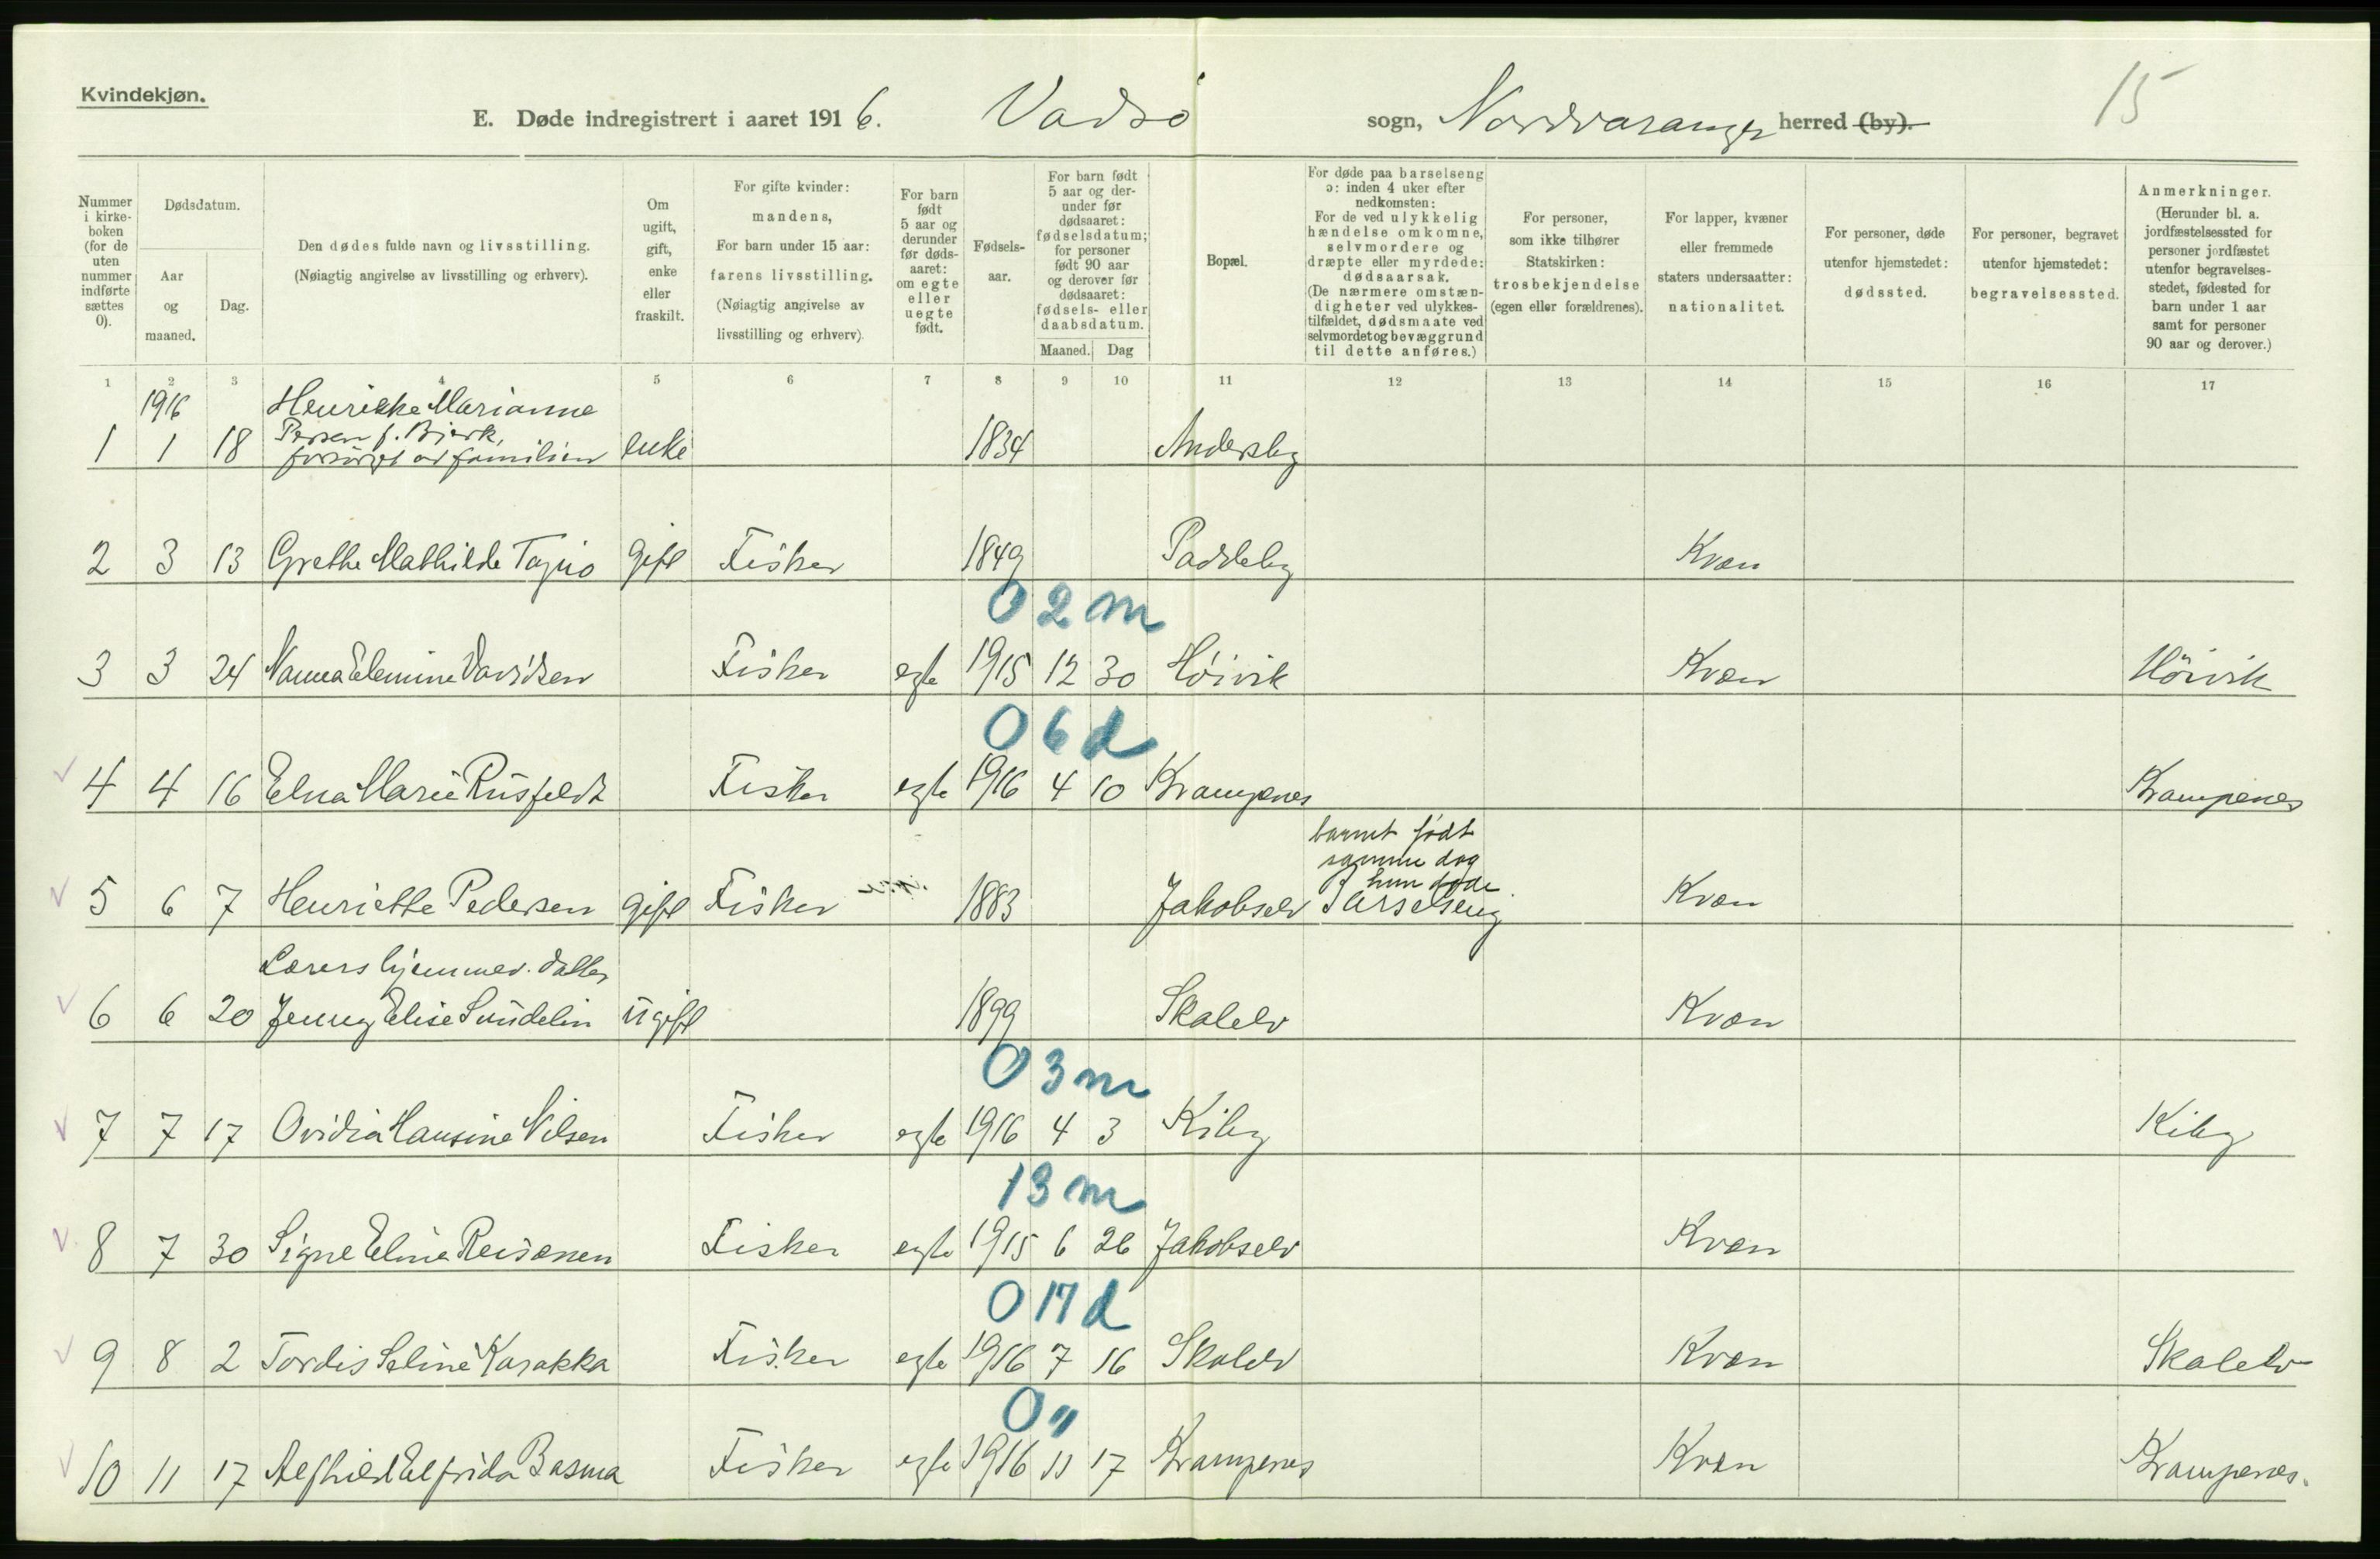 Kvindekjøn.
E. Døde indregistrert i aaret 1916. Vadsø sogn, Nordvaranger herred (by).
15
Nummer i kirkeboken (for de uten nummer indførte sættes 0).
Dødsdatum.
Aar og maaned.
Dag.
Den dødes fulde navn og livsstilling.
(Nøiagtig angivelse av livsstilling og erhverv).
Om ugift, gift, enke eller fraskilt.
For gifte kvinder: mandens, For barn under 15 aar: farens livsstilling. (Nøiagtig angivelse av livsstilling og erhverv).
For barn født 5 aar og derunder før dødsaaret: om egte eller uegte født.
Fødselsaar.
For barn født 5 aar og derunder før dødsaaret: fødselsdatum; for personer født 90 aar og derover før dødsaaret: fødsels- eller daabsdatum.
Maaned. Dag
Bopæl.
For døde paa barselseng ɔ: inden 4 uker efter nedkomsten: For de ved ulykkelig hændelse omkomne, selvmordere og dræpte eller myrdede: dødsaarsak. (De nærmere omstændigheter ved ulykkestilfældet, dødsmaate ved selvmordet og bevæggrund til dette anføres.)
For personer, som ikke tilhører Statskirken: trosbekjendelse (egen eller forældrenes).
For lapper, kvæner eller fremmede staters undersaatter: nationalitet.
For personer, døde utenfor hjemstedet: dødssted.
For personer, begravet utenfor hjemstedet: begravelsessted.
Anmerkninger. (Herunder bl. a. jordfæstelsessted for personer jordfæstet utenfor begravelsesstedet, fødested for barn under 1 aar samt for personer 90 aar og derover.)
1 2 3 4 5 6 7 8 9 10 11 12 13 14 15 16 17
1916 Henrikke Marianne
Persen f. Bjørk,
1 1 18 forsørget av familien enke 1834 Andersby
2 3 13 Grethe Mathilde Tapio gift Fisker 1849 Paddeby Kvæn
0 2 m
3 3 24 Nanna Elenine Davidsen Fisker egte 1915 12 30 Høivik Kvæn Høivik
0 6 d
4 4 16 Elna Marie Rusfeldt Fisker egte 1916 4 10 Krampenes Krampenes
barnet født
samme dag
hun døde
5 6 7 Henriette Pedersen gift Fisker 1883 Jakobselv Barselseng Kvæn
Lærers hjemmev. datter
6 6 20 Jenny Elise Sundelin ugift 1899 Skalelv Kvæn
0 3 m
7 7 17 Ovidia Hansine Nilsen Fisker egte 1916 4 3 Kiby Kiby
13 m
8 7 30 Signe Eline Reisænen Fisker egte 1915 6 26 Jakobselv Kvæn
0 17 d
9 8 2 Tordis Seline Karakka Fisker egte 1916 7 16 Skalelv Kvæn Skalelv
0 "
10 11 17 Alfhild Elfrida Basma Fisker egte 1916 11 17 Krampenes Kvæn Krampenes.